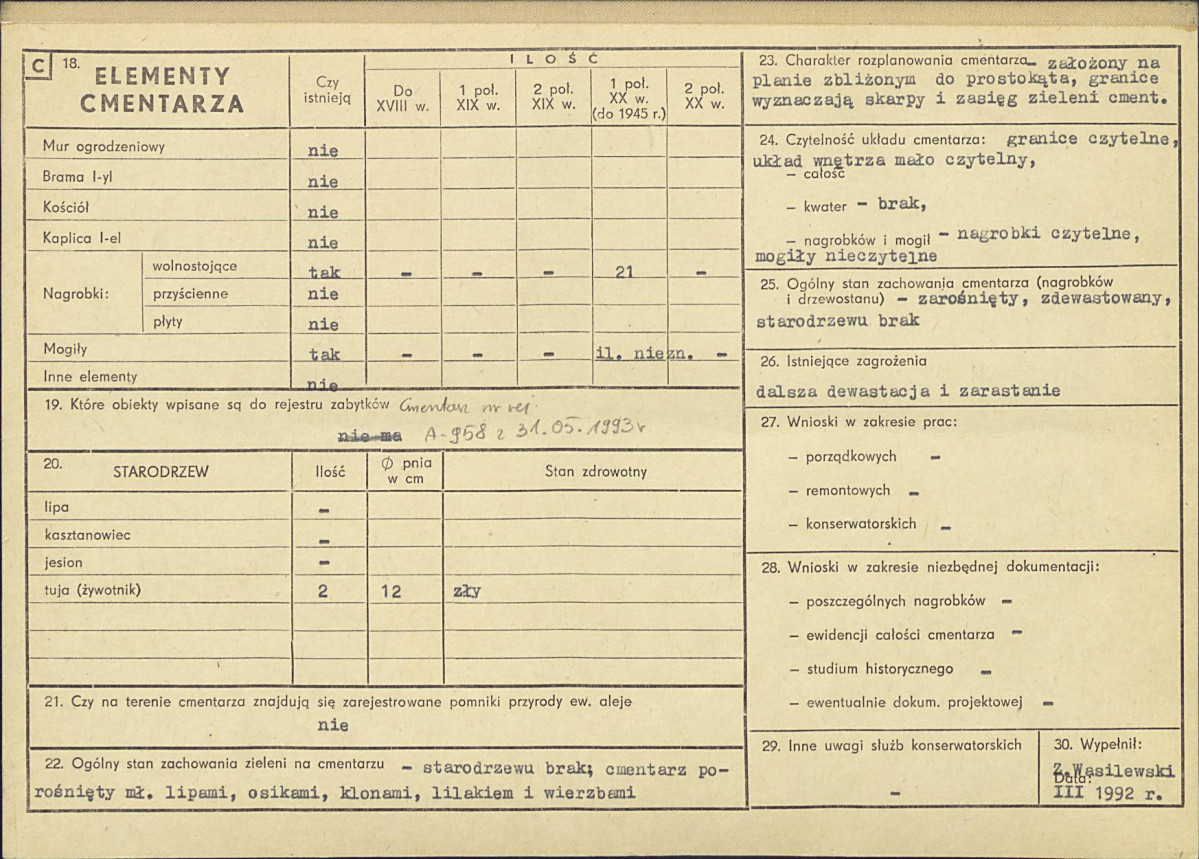 C 18. ELEMENTY CMENTARZA
Czy istnieją
ILOŚĆ
Do XVIII w.
1 poł. XIX w.
2 poł. XIX w.
1 poł. XX w. (do 1945 r.)
2 poł. XX w.
Mur ogrodzeniowy nie
Brama I-yl nie
Kościół nie
Kaplica I-el nie
Nagrobki:
wolnostojące tak - - - 21 -
przyścienne nie
płyty nie
Mogiły tak - - - il. niezn. -
Inne elementy nie
19. Które obiekty wpisane są do rejestru zabytków Cmentarz nr rej.
nie ma A-958 z 31.05.1993 r
20. STARODRZEW Ilość Ø pnia w cm Stan zdrowotny
lipa -
kasztanowiec -
jesion -
tuja (żywotnik) 2 12 zły
21. Czy na terenie cmentarza znajdują się zarejestrowane pomniki przyrody ew. aleje
nie
22. Ogólny stan zachowania zieleni na cmentarzu - starodrzewu brak; cmentarz po-
rośnięty mł. lipami, osikami, klonami, lilakiem i wierzbami
23. Charakter rozplanowania cmentarza - założony na
planie zbliżonym do prostokąta, granice
wyznaczają skarpy i zasięg zieleni cment.
24. Czytelność układu cmentarza: granice czytelne,
układ wnętrza mało czytelny,
- całość
- kwater - brak,
- nagrobków i mogił - nagrobki czytelne,
mogiły nieczytelne
25. Ogólny stan zachowania cmentarza (nagrobków
i drzewostanu) - zarośnięty, zdewastowany,
starodrzewu brak
26. Istniejące zagrożenia
dalsza dewastacja i zarastanie
27. Wnioski w zakresie prac:
- porządkowych -
- remontowych -
- konserwatorskich -
28. Wnioski w zakresie niezbędnej dokumentacji:
- poszczególnych nagrobków -
- ewidencji całości cmentarza -
- studium historycznego -
- ewentualnie dokum. projektowej -
29. Inne uwagi służb konserwatorskich
-
30. Wypełnił:
Z.Wasilewski
Data:
III 1992 r.